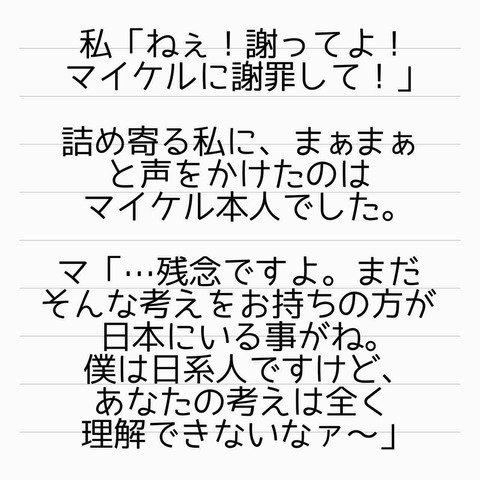 私「ねぇ！謝ってよ！
マイケルに謝罪して！」
詰め寄る私に、まぁまぁ
と声をかけたのは
マイケル本人でした。
マ「…残念ですよ。まだ
そんな考えをお持ちの方が
日本にいる事がね。
僕は日系人ですけど、
あなたの考えは全く
理解できないなァ～」